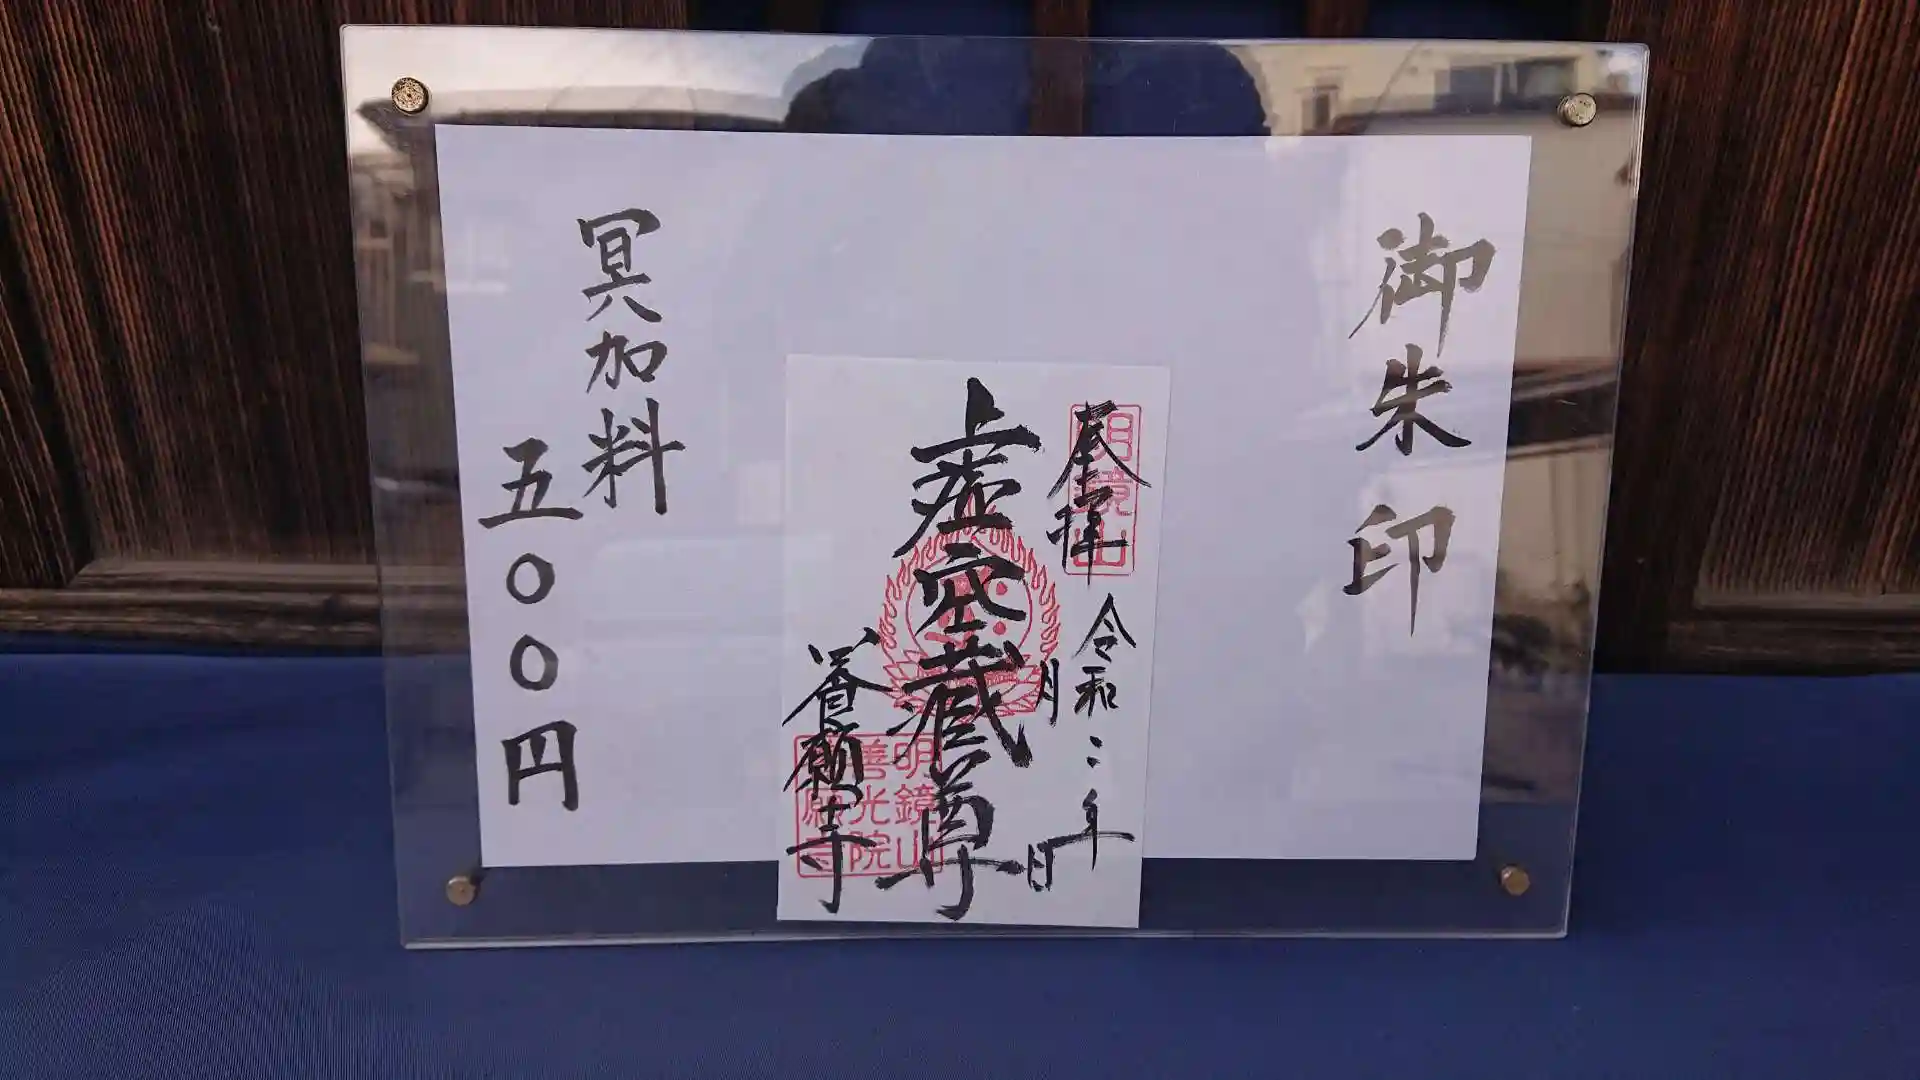 御朱印
明鏡山
奉拝
令和二年
月
日
虚空蔵尊
善願寺
明鏡山
善光院
願寺
冥加料
五〇〇円